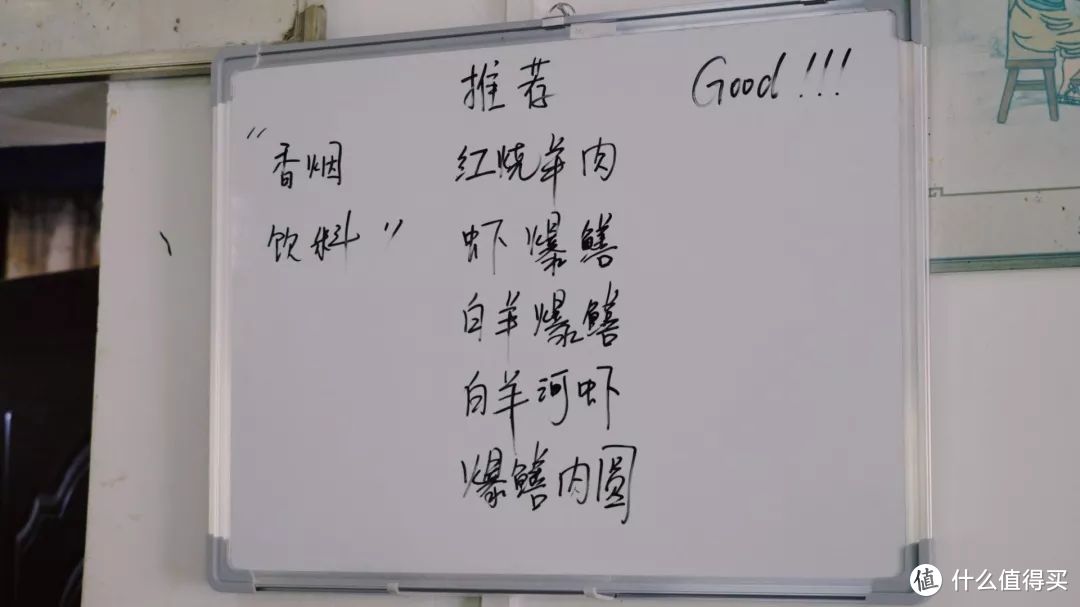 推荐 Good!!!
"香烟 红烧羊肉
饮料" 虾爆鳝
白羊爆鳝
白羊河虾
爆鳝肉圆
值 什么值得买